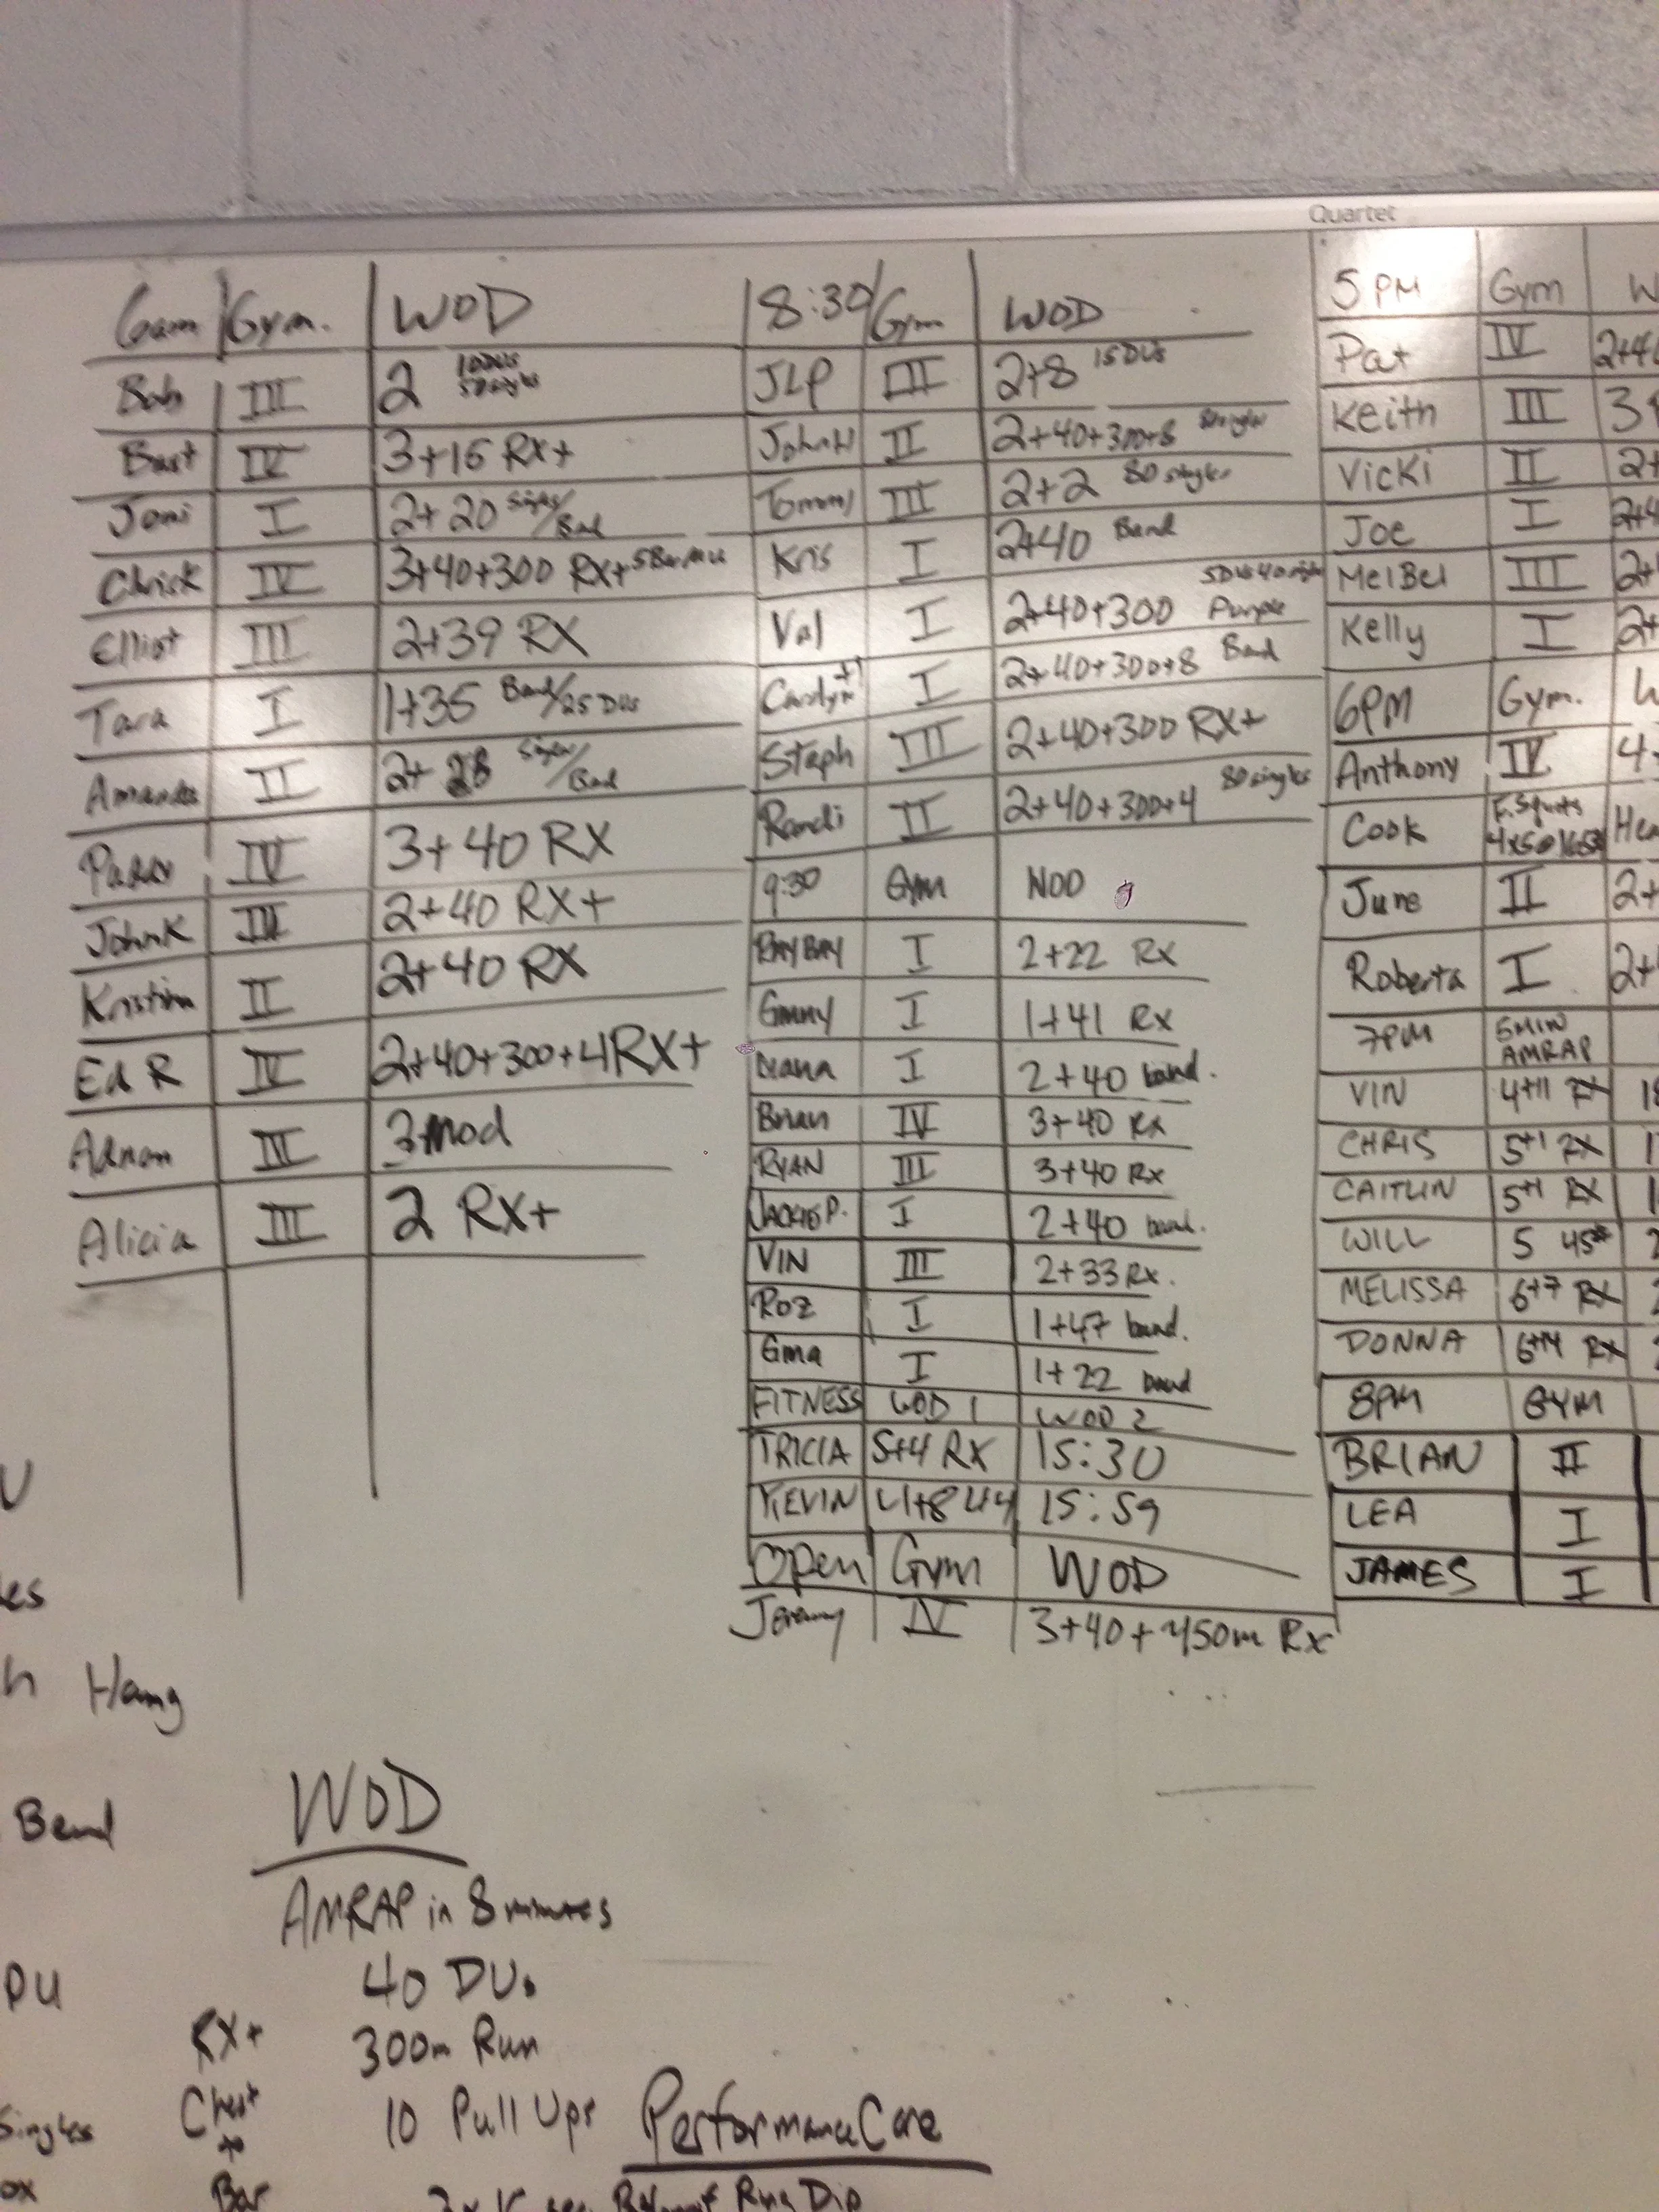 Quartet
6am Gym. WOD
Bob III 2 10 DUs 50 singles
Bart IV 3+15 RX+
Joni I 2+20 Singles/Band
Chris K IV 3+40+300 RX+ 5 Bar MU
Elliot III 2+39 RX
Tara I 1+35 Band/25 DUs
Amanda II 2+28 Singles/Band
Parry IV 3+40 RX
John K III 2+40 RX+
Kristina II 2+40 RX
Ed R IV 2+40+300+4 RX+
Adnan III 3 mod
Alicia III 2 RX+
8:30 Gym WOD
JLP III 2+8 15 DUs
John H II 2+40+300+8 80 singles
Tommy III 2+2 80 singles
Kris I 2+40 Band
Val I 2+40+300 5 DUs 40 singles Purple
Carolyn +1 I 2+40+300+8 Band
Steph III 2+40+300 RX+
Randi II 2+40+300+4 80 singles
9:30 Gym WOD
RAY BAY I 2+22 Rx
Ginny I 1+41 Rx
Diana I 2+40 band.
Brian IV 3+40 Rx
RYAN III 3+40 Rx
JACKIE P. I 2+40 band.
VIN III 2+33 Rx.
ROZ I 1+47 band.
Gma I 1+22 band
FITNESS WOD 1 WOD 2
TRICIA 5+4 RX 15:30
KEVIN 4+8 44 15:59
Open Gym WOD
Jeremy IV 3+40+450m Rx
5 PM Gym
Pat IV
Keith III
Vicki II
Joe I
Mel Bel III
Kelly I
6PM Gym.
Anthony IV
Cook F. Squats 4x5@165#
June II
Roberta I
7PM 6 MIN AMRAP
VIN 4+11 RX
CHRIS 5+1 RX
CAITLIN 5+1 RX
WILL 5 45#
MELISSA 6+7 RX
DONNA 6+4 RX
8PM GYM
BRIAN II
LEA I
JAMES I
Hang
Band
WOD
AMRAP in 8 minutes
40 DUs
RX+ 300m Run
Singles Chest to Bar 10 Pull Ups
Performance Core
Ring Dip